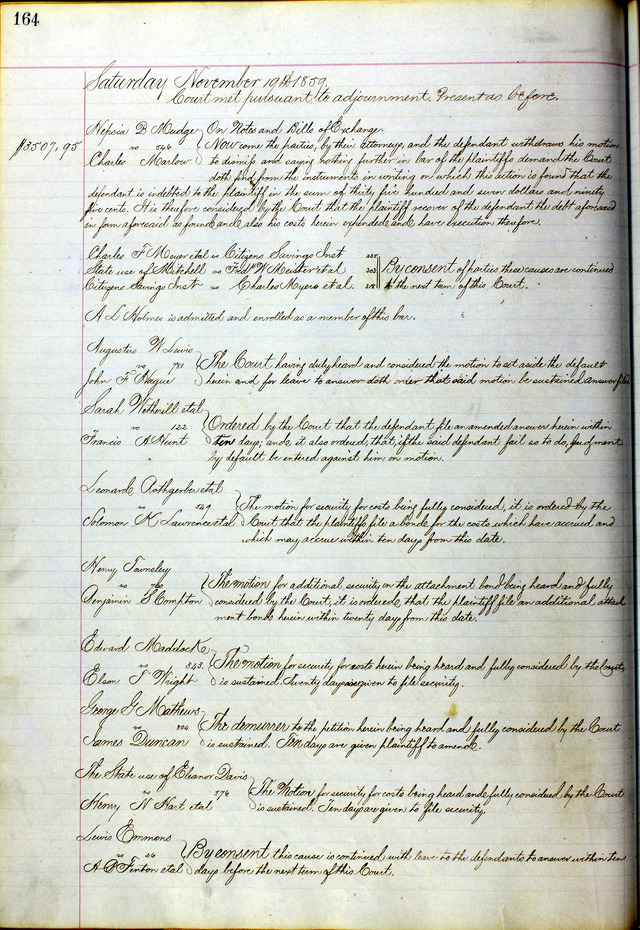 164
Saturday November 19th 1859
Court met pursuant to adjournment. Present as before.
B Mudge } On Notes and Bills of Exchange.
$3507,95 vs 546 Now come the parties, by their attorneys, and the defendant withdraws his motion
Charles Marlow to dismiss and saying nothing further in bar of the plaintiffs demand the Court
doth find from the instruments in writing on which this action is found that the
defendant is indebted to the plaintiff in the sum of thirty five hundred and seven dollars and ninety
five cents. It is therefore considered by the Court that the plaintiff recover of the defendant the debt aforesaid
in form aforesaid as found and also his costs herein expended and have execution therefore.
Charles F Meyer etal vs Citizens Savings Inst
State use of Mitchell vs Fred W Meister etal By consent of parties these causes are continued
Citizens Savings Inst vs Charles Myers etal. to the next term of this Court.
A L Holmes is admitted and enrolled as a member of this bar.
Augustus W Lewis
vs 781 } The Court having duly heard and considered the motion to set aside the default
John F Hague herein and for leave to answer doth order that said motion be sustained answer filed
Sarah Wetherill etal
vs 122 } Ordered by the Court that the defendant file an amended answer herein within
Francis A Hunt ten days; and it also ordered, that, if the said defendant fail so to do, judgment
by default be entered against him on motion.
Leonard Rothgerber etal
vs 549 } The motion for security for costs being fully considered, it is ordered by the
Solomon K Lawrence etal Court that the plaintiffs file a bond for the costs which have accrued and
which may accrue within ten days from this date.
Henry Townsley
vs 760 } The motion for additional security on the attachment bond being heard and fully
Benjamin S Compton considered by the Court, it is ordered, that the plaintiff file an additional attach
ment bond herein within twenty days from this date.
Edward Maddock
vs 343. } The motion for security for costs herein being heard and fully considered by the Court,
Elson F Wright is sustained. Twenty days given to file security.
George G Mathews
The demurrer to the petition herein being heard and fully considered by the Court
James Duncan is sustained. Ten days are given plaintiff to amend.
The State use of Eleanor Davis
vs 576 } The Motion for security for costs being heard and fully considered, by the Court
Henry N Hart etal is sustained. Ten days are given to file security.
Lewis Emmons
vs 56 } By consent this cause is continued with leave to the defendants to answer within ten
A P Finton etal days before the next term of this Court.